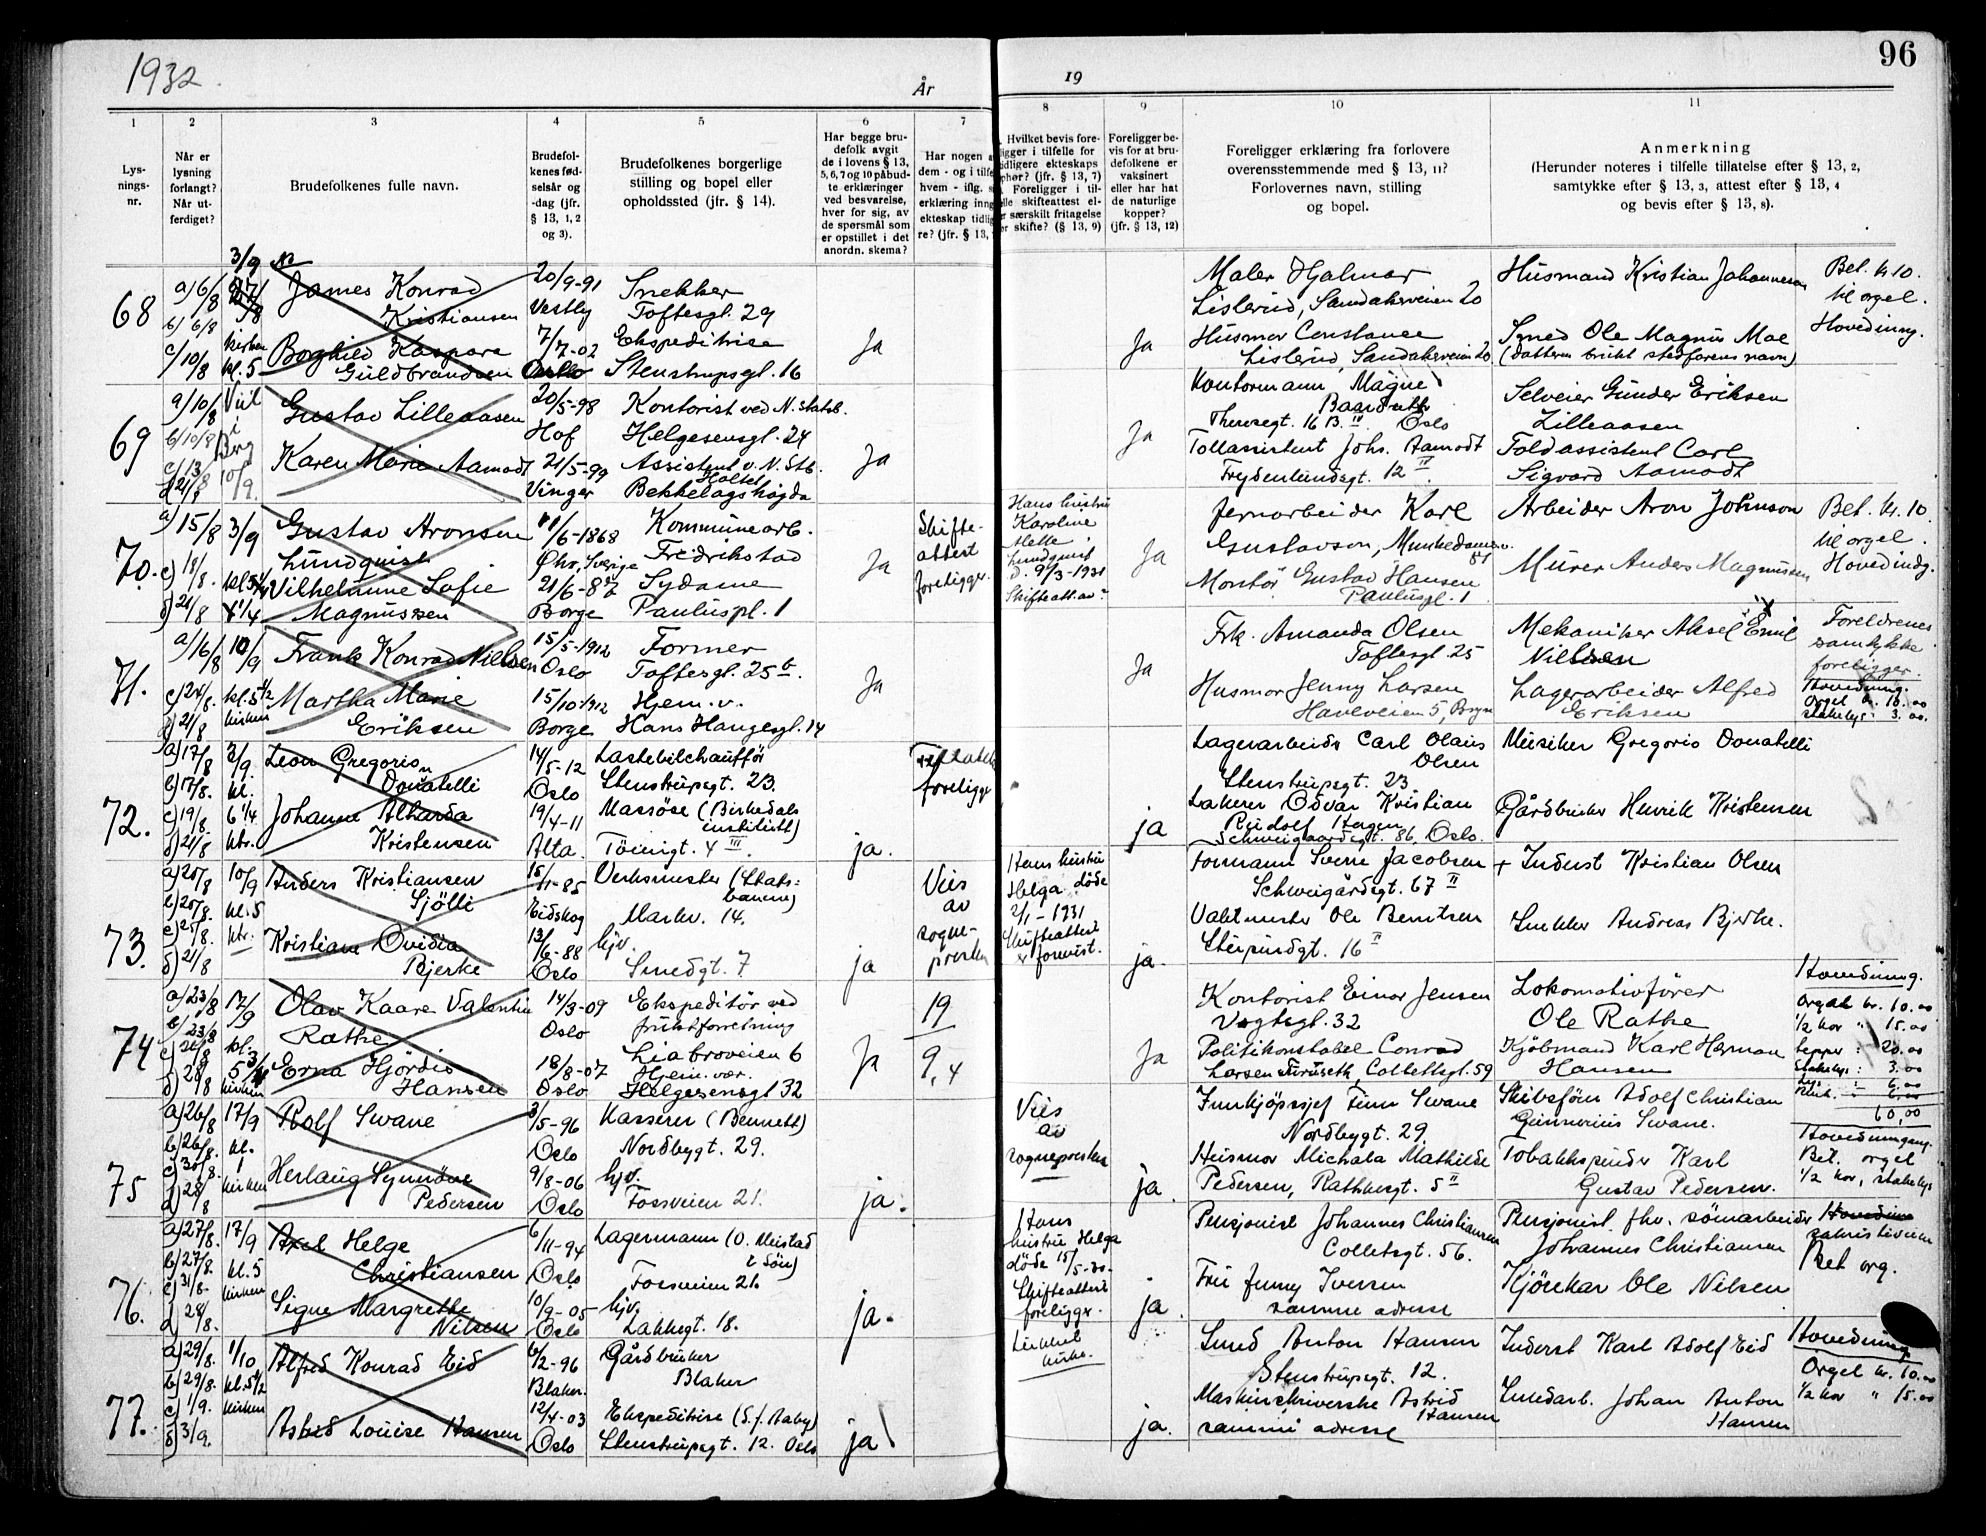 1932.
År
19
96
1
2
3
4
5
6
7
8
9
10
11
Lys-
nings-
nr.
Når er
lysning
forlangt?
Når ut-
ferdiget?
Brudefolkenes fulle navn.
Brudefol-
kenes fød-
selsår og
-dag (jfr.
§ 13, 1, 2
og 3).
Brudefolkenes borgerlige
stilling og bopel eller
opholdssted (jfr. § 14).
Har begge bru-
defolk avgit
de i lovens § 13,
5, 6, 7 og 10 påbud-
te erklæringer
ved besvarelse,
hver for sig, av
de spørsmål som
er opstillet i det
anordn. skema?
Har nogen
dem - og i tilf
hvem - iflg.
erklæring inng
ekteskap tidlig
re? (jfr. § 13,
Hvilket bevis fore-
ligger i tilfelle for
tidligere ekteskaps
ophør? (jfr. § 13, 7)
Foreligger i til-
elle skifteattest el-
er særskilt fritagelse
er skifte? (§ 13, 9)
Foreligger be-
vis for at bru-
defolkene er
vaksinert
eller har hat
de naturlige
kopper?
(jfr. § 13, 12)
Foreligger erklæring fra forlovere
overensstemmende med § 13, 11?
Forlovernes navn, stilling
og bopel.
Anmerkning
(Herunder noteres i tilfelle tillatelse efter § 13, 2,
samtykke efter § 13, 3, attest efter § 13, 4
og bevis efter § 13, 8).
68
a) 6/8
b) 6/8
c) 10/8
3/9
kirken
kl. 5
James Konrad
Kristiansen
Borghild Kaspara
Guldbrandsen
20/9-91
Vestby
7/7-02
Oslo
Snekker
Toftesgt. 29
Ekspeditrise
Stenstrupsgt. 16
Ja
Ja
Maler Hjalmar
Lislerud, Sandakerveien 20
Husmor Constance
Lislerud, Sandakerveien 20
Husmand Kristian Johannesen
Smed Ole Magnus Moe
(datteren brukt stedfarens navn)
Bet. kr 10.
til orgel.
Hovedinng.
69
a) 10/8
b) 10/8
c) 13/8
d) 21/8
Viil
i
Berg
10/9.
Gustav Lilleaasen
Karen Marie Aamodt
20/5-98
Hof
21/5-99
Vinger
Kontorist ved N. statsb.
Helgesensgt. 24
Assistent v. N. Stb.
Holtet
Bekkelagshøgda
Ja
Ja
Kontormann Magne
Theresegt. 16 B. III Oslo
Tollassistent Johs. Aamodt
Frydenlundsgt. 12 II
Selveier Gunder Eriksen
Lilleaasen
Toldassistent Carl
Sigvard Aamodt
70.
a) 15/8
c) 18/8.
d) 21/8
3/9
Gustav Aronsen
Lundquist
Vilhelmine Sofie
Magnussen
11/6-1868
Øhr, Sverige
21/6-87
Borge
Kommunearb.
Fredrikstad
Sydame
Pauluspl. 1
Ja
Skifte-
attest
foreligger.
Hans hustru
Karoline
Mette
Lundquist
d. 9/3-1931
Skifteatt. av?
Ja
Jernarbeider Karl
Gustavson, Munkedamsv.
Montør Gustav Hansen
Pauluspl. 1
Arbeider Aron Johnson
Murer Anders Magnussen
Bet. kr. 10.
til orgel.
Hovedindg.
71.
a) 16/8
c) 24/8.
d) 21/8
10/9
kl. 5 1/2
kirken
Frank Konrad Nielsen
Martha Marie
Eriksen
15/5-1912
Oslo
15/10-1912
Borge
Former
Toftesgt. 25 b.
Hjem. v.
Hans Haugesgt. 14
Ja
Ja
Frk. Amanda Olsen
Toftesgt. 25
Husmor Jenny Larsen
Haveveien 5, Bryn
Mekaniker Aksel Emil
Nielsen
Lagerarbeider Alfred
Eriksen
Foreldrenes
samtykke
foreligger.
Hovedinng.
Orgel kr. 10.00
stakelys 3.00.
72.
a) 17/8
b) 17/8.
c) 19/8.
d) 21/8
3/9.
kl.
6 1/4
ktr.
Leon Gregorio
Donatelli
Johanne Alharda
Kristensen
14/5-12
Oslo
19/4-11
Alta.
Lastebilchauffør
Stenstrupsgt. 23.
Massøse (Birkedals
institutt)
Tøiengt. 4 III.
ja.
foreligger
ja
Lagerarbeider Carl Olaus
Olsen
Stenstrupsgt. 23
Lakerer Odvar Kristian
Rudolf Hagen
Schweigaardsgt. 86, Oslo.
Musiker Gregorio Donatelli
Gårdbruker Henrik Kristensen
73.
a) 20/8
b) 20/8.
c) 25/8.
d) 21/8
10/9
kl. 5
ktr.
Anders Kristiansen
Sjölli
Kristiane Ovidia
Bjerke
15/11-85
Eidskog
13/6-88
Oslo
Verksmester (Stats-
banene)
Markv. 14.
hjv.
Smedgt. 7
ja
Vies
av
sogne-
presten
Hans hustru
Helga døde
2/1-1931
Skifteattest
er forevist.
ja.
Formann Sverre Jacobsen
Schweigårdsgt. 67 II
Vaktmester Ole Berntsen
Steinsundgt. 16 II
+ Inderst Kristian Olsen
Snekker Andreas Bjerke.
74
a) 23/8
b) 23/8
17/9
kl.
kirken
Olav Kaare Valentin
Rathe
Erna Hjördis
Hansen
14/3-09
Oslo
18/8-07
Oslo
Ekspeditör ved
fruktforretning
Liabroveien 6
Hjem. vær.
Helgesensgt 32
Ja
19
9, 4
Ja
Kontorist Einar Jensen
Vogtsgt. 32
Politikonstabel Conrad
Larsen Furuseth, Collettsgt. 59
Lokomotivfører
Ole Rathe
Kjöbmand Karl Herman
Hansen
Hovedinng.
Orgel kr. 10.00
1/2 kor " 15.00
tepper : 20.00
stakelys : 3.00
6.00
60,00
75
a) 26/8
b) 26/8.
c) 30/8.
d) 28/8
17/9
kl.
1
kirken
Rolf Swane
Herlaug Synnöve
Pedersen
3/5-96
Oslo
9/8-06
Oslo
Kasserer (Bennett)
Nordbygt. 29.
hjv.
Fossveien 21.
ja.
Vies
av
sognepresten
ja.
Innkjøpssjef Finn Swane
Nordbygt. 29.
Husmor Michala Mathilde
Pedersen, Rathkesgt. 5 II
Skibsfører Adolf Christian
Gunnerius Swane.
Tobakkspinder Karl
Gustav Pedersen.
Hovedinngang.
Bet. orgel
1/2 kor, stakelys
76.
a) 27/8.
b) 27/8.
c) 31/8.
d) 28/8.
17/9
kl. 5
kirken
Axel Helge
Christiansen
Signe Margrethe
Nilsen
6/11-94
Oslo
10/9-05
Oslo
Lagermann (O. Meistad
& Sön)
Fossveien 21.
hjv.
Lakkegt. 18.
ja.
Hans
hustru Helga
døde 15/5-30.
Skifteattest
foreligger.
ja.
Pensjonist Johannes Christiansen
Colletsgt. 56.
Fru Jenny Iversen
samme adresse
Pensjonist, fhv. sömarbeider
Johannes Christiansen
Kjörekar Ole Nilsen
sakristiveien
Bet org.
77.
a) 29/8.
b) 29/8.
c) 1/9.
d) 3/9.
1/10
kl. 5 1/2
kirken
Alfred Konrad Eid
Astrid Louise Hansen
6/2-96
Blaker.
12/4-03
Oslo
Gårdbruker
Blaker
Ekspeditrise (S. J. Aaby)
Stenstrupsgt. 12. Oslo
ja
kirke.
ja.
Smed Anton Hansen
Stenstrupsgt. 12.
Maskinskriverske Astrid
Hansen
samme adresse
Inderst Karl Adolf Eid
Smedarb. Johan Anton
Hansen
Hovedinng
Orgel kr. 10.00
1/2 kor " 15.00